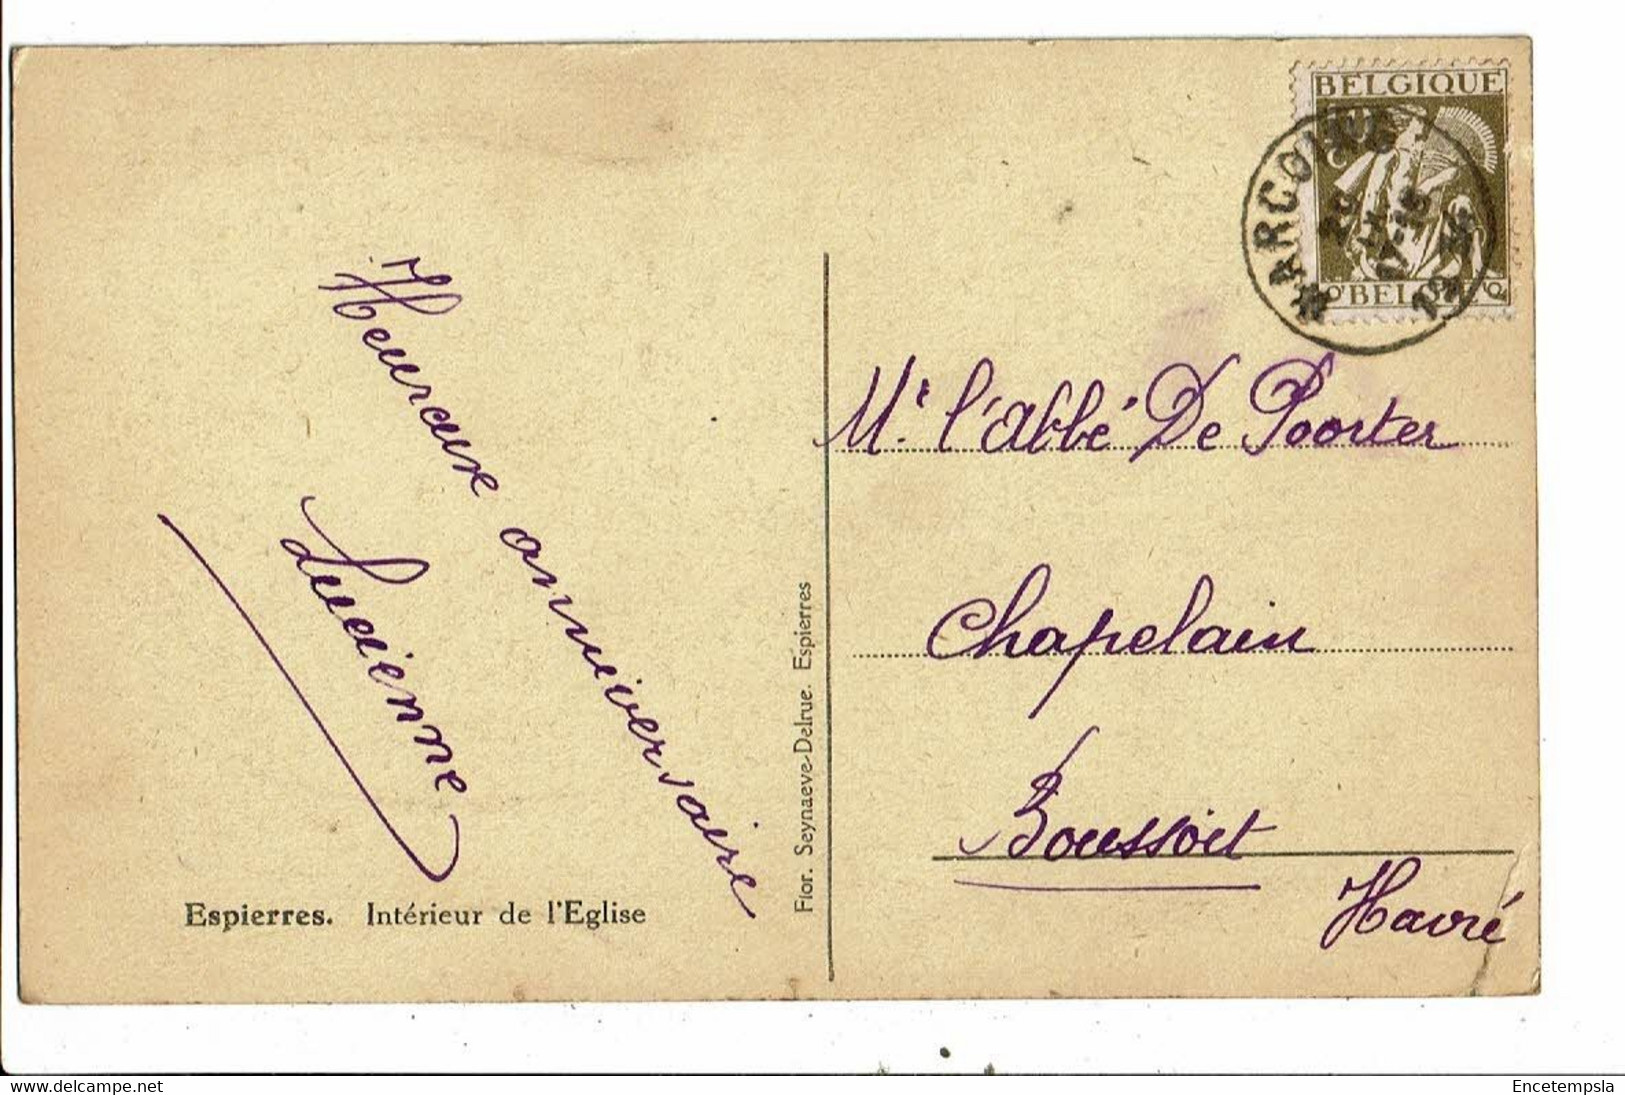 BELGIQUE
BELGIE
Heureux anniversaire
Lucienne
Mr. l'Abbé De Poorter
Chapelain
Boussoit
Havré
Flor. Seynaeve-Delrue. Espierres
Espierres. Intérieur de l'Eglise
www.delcampe.net
Encetempsla